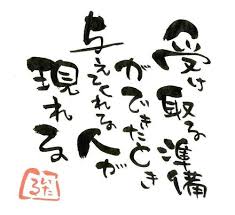 受け取る準備
ができたとき
与えてくれる人が
現れる